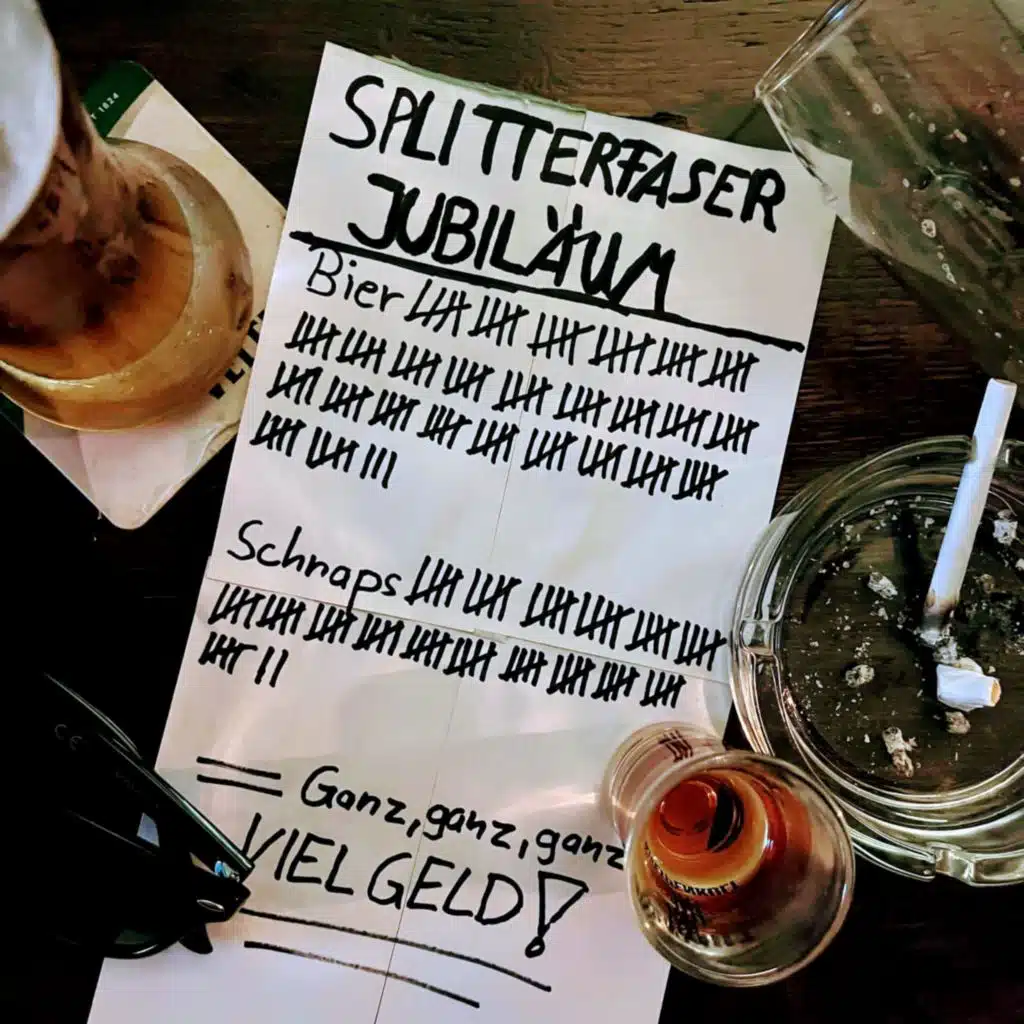 SPLITTERFASER
JUBILÄUM
Bier
Schnaps
= Ganz, ganz, ganz
VIEL GELD!
1824
CE